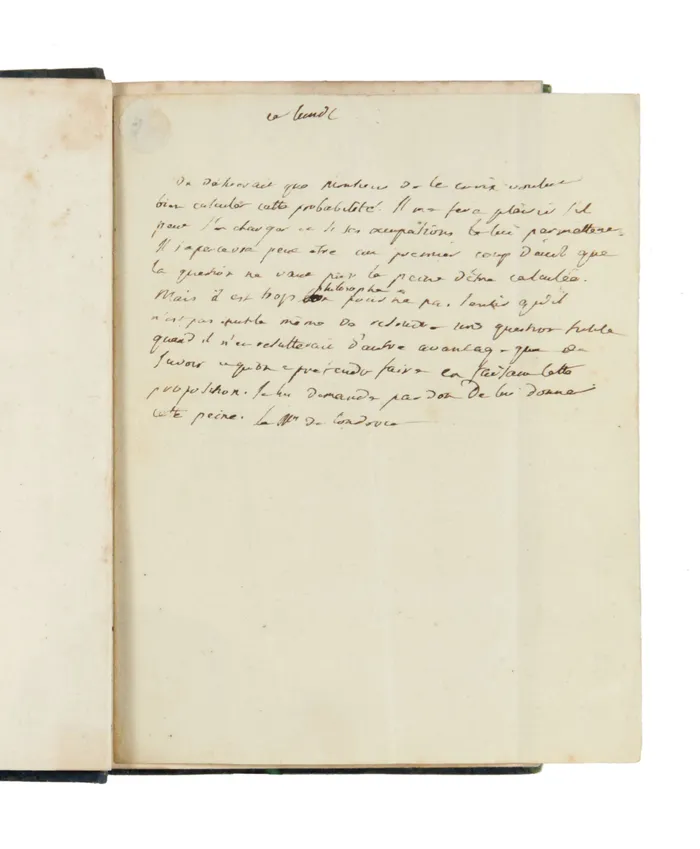 ce lundi
On désirerait que Monsieur De la croix voulut
bien calculer cette probabilité. Il me fera plaisir s'il
peut s'en charger et si ses occupations le lui permettent.
Il s'apercevra peut etre au premier coup d'œil que
la question ne vaut pas la peine d'être calculée.
Mais il est trop philosophe pour ne pas sentir qu'il
n'est pas inutile même de résoudre une question futile
quand il n'en resulterait d'autre avantage que de
savoir ce qu'on a prétendu faire en faisant cette
proposition. Je lui demande pardon De lui donner
cette peine. Le Mis de Condorcet